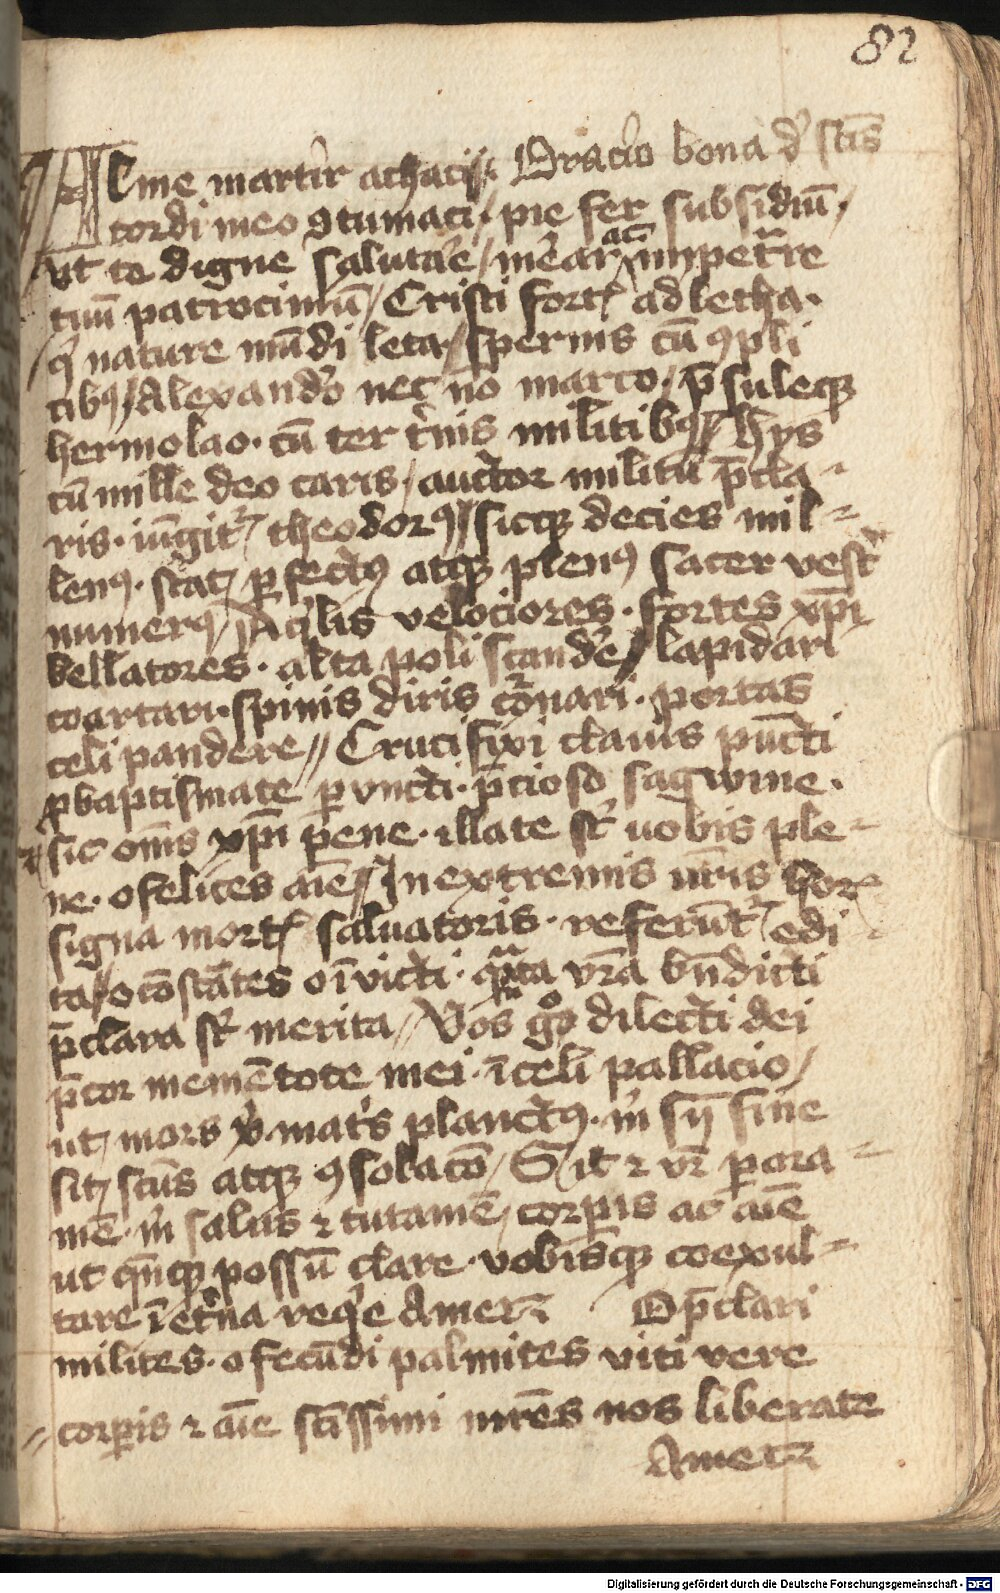 82
Alme martir achacij. Oracio bona d' sc̄is
cordi meo ꝯtumaci. pie fer subsidiū.
ut te digne salutar̄e / mēar ac impetr̄are
tuū patrociniū / Cristi fort adletha.
nature mūdi leta / spernis cū ꝯpli
cibꝯ / Alexandro nec nō marco. p̄suleqꝫ
hermolao. cū ter t'nis militibꝯ // Hys
cū mille deo caris / auctor militū p̄cla-
ris. iūgitr theodorꝯ // sicqꝫ decies mil=
lenꝯ. stat ꝑfectꝯ atqꝫ plenꝯ sacer vest'
numerꝯ // Aq'lis velociores. fortes xp̄i
bellatores. alta poli scand'e // lapidari
coartari. spinis diris coronari. portas
celi pandere // Crucifixi clauis pūcti
baptismate ꝑuncti. p̄cioso sagwine.
sic om̄is xp̄i pene. illate sr̄ uobis ple=
ne. o felices aīe // In extremis ur̄is hor
signa mort saluatoris. referūtr edi
ta / o cōstātes o īvicti. vr̄a bn̄dicti
p̄clara sr̄ merita // Vos gͦ dilecti dei
p̄cor memētote mei. ī celi pallacio /
ut mors mat's planctꝯ. m' sij fine
sit sc̄us atqꝫ ꝯsolacō / Sit ⁊ vr̄ ꝑ ora=
mē m' salus ⁊ tutamē / corꝑis ac aīe
ut possū clare. vobisqꝫ coexul=
tare ī et'na req'e Amen Op̄clari
milites. o fecūdi palmites viti vere
// corꝑis ⁊ aīe sc̄issimi mr̄es nos liberate
Amen
Digitalisierung gefördert durch die Deutsche Forschungsgemeinschaft - DFG